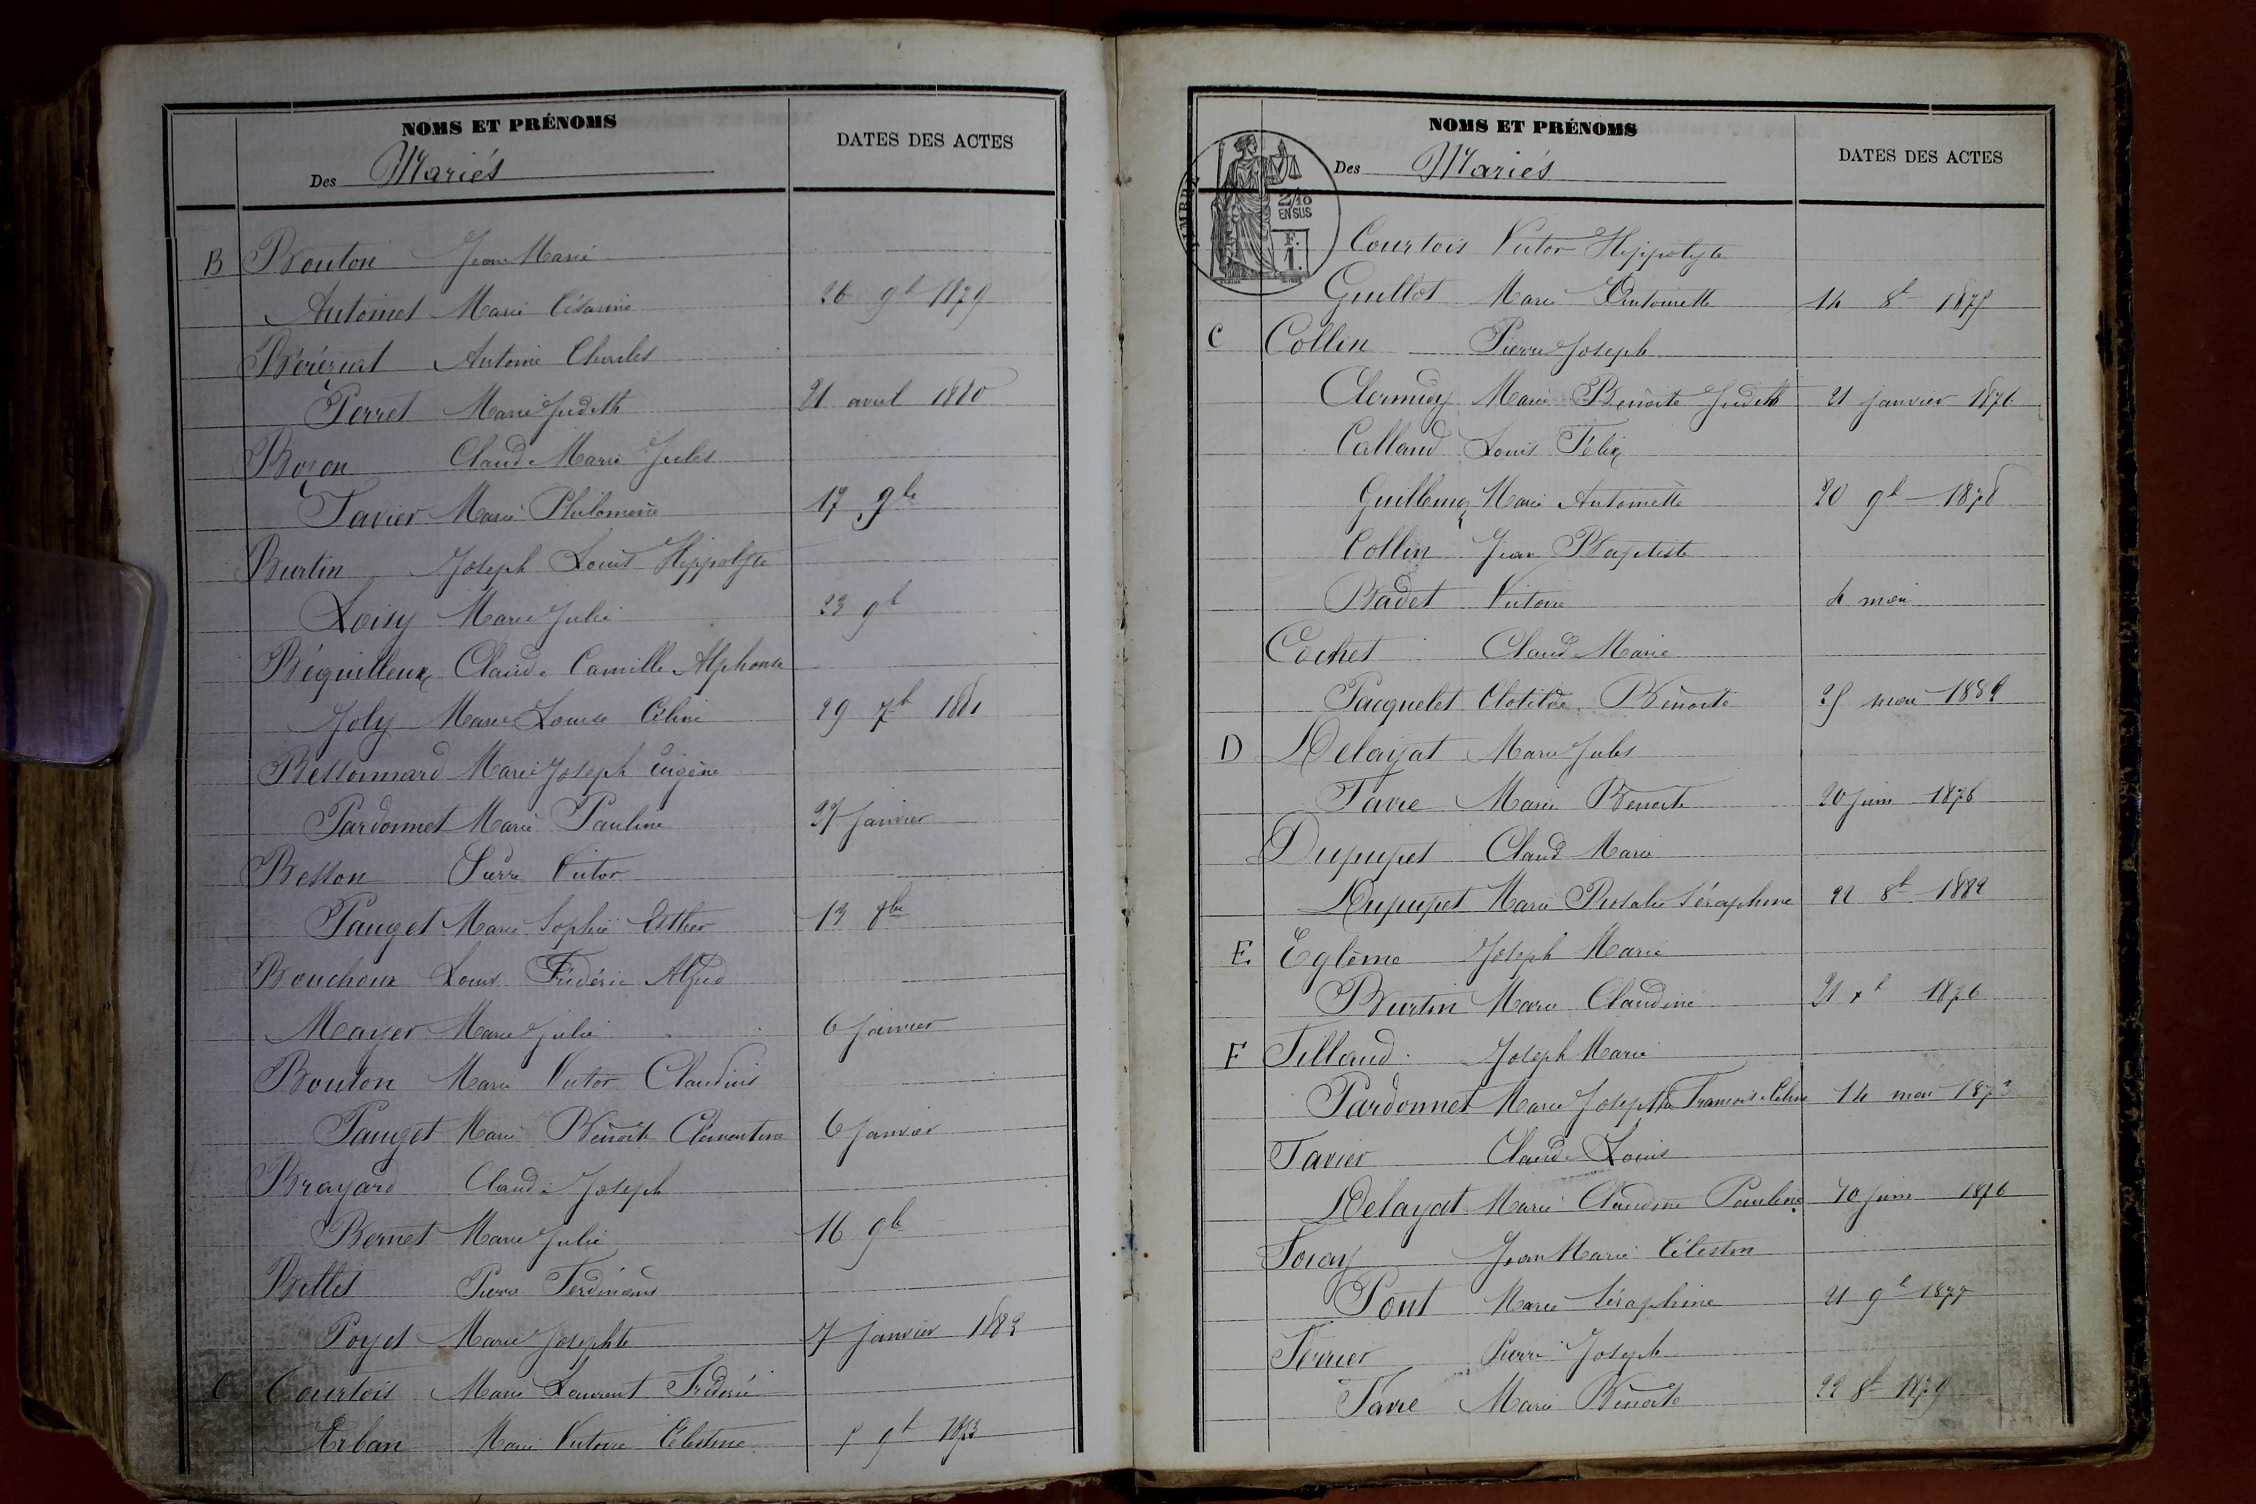 NOMS ET PRÉNOMS
Des Mariés
DATES DES ACTES
B Bouton Jean Marie
Antoinet Marie Césarine 26 9b 1879
Antoine Charles
Perret Marie Judith 21 avril 1880
Bozon Claude Marie Jules
Favier Marie Philomène 17 9be
Burtin Joseph Louis Hippolyte
Loisy Marie Julie 23 9b
Béquilleux Claude Camille Alphonse
Joly Marie Louise Céline 29 7b 1881
Bessonnard Marie Joseph Eugène
Pardonnet Marie Pauline 27 janvier
Besson Pierre Victor
Pauget Marie Sophie Esther 13
Bouchoux Louis Frédéric Alfred
Mayer Marie Julie 6 janvier
Bouton Marie Victor Claudius
Pauget Marie Benoite Clémentine 6 janvier
Brayard Claude Joseph
Bernet Marie Julie 16 9b
Pierre Ferdinand
Poyet Marie Josephte 7 janvier
C Courtois Marie Laurent Frédéric
Arban Marie Victoire Célestine 9b 1873
NOMS ET PRÉNOMS
Des Mariés
DATES DES ACTES
TIMBRE
2/10
EN SUS
F.
1.
Courtois Victor Hippolyte
Guillot Marie Antoinette 14 8b 1875
C Collin Pierre Joseph
Marie Benoite Judith 21 janvier 1876
Calland Louis Félix
Guillemoz Marie Antoinette 20 9b 1878
Collin Jean Baptiste
Badet Victoire 4 mai
Cochet Claude Marie
Pacquelet Clotilde Benoite mai 1882
D Delayat Marie Jules
Favre Marie Benoite 20 juin 1876
Dupupet Claude Marie
Dupupet Marie Séraphine 22 8b 1882
E Eglême Joseph Marie
Burtin Marie Claudine 21 xb 1876
F Filland Joseph Marie
Pardonnet Marie Josephte Françoise Céline 14 mai 1873
Favier Claude Louis
Delayat Marie Claudine Pauline 10 juin 1876
Foray Jean Marie Célestin
Pont Marie Séraphine 21 9b 1877
Ferrier Pierre Joseph
Favre Marie Benoite 22 8b 1879